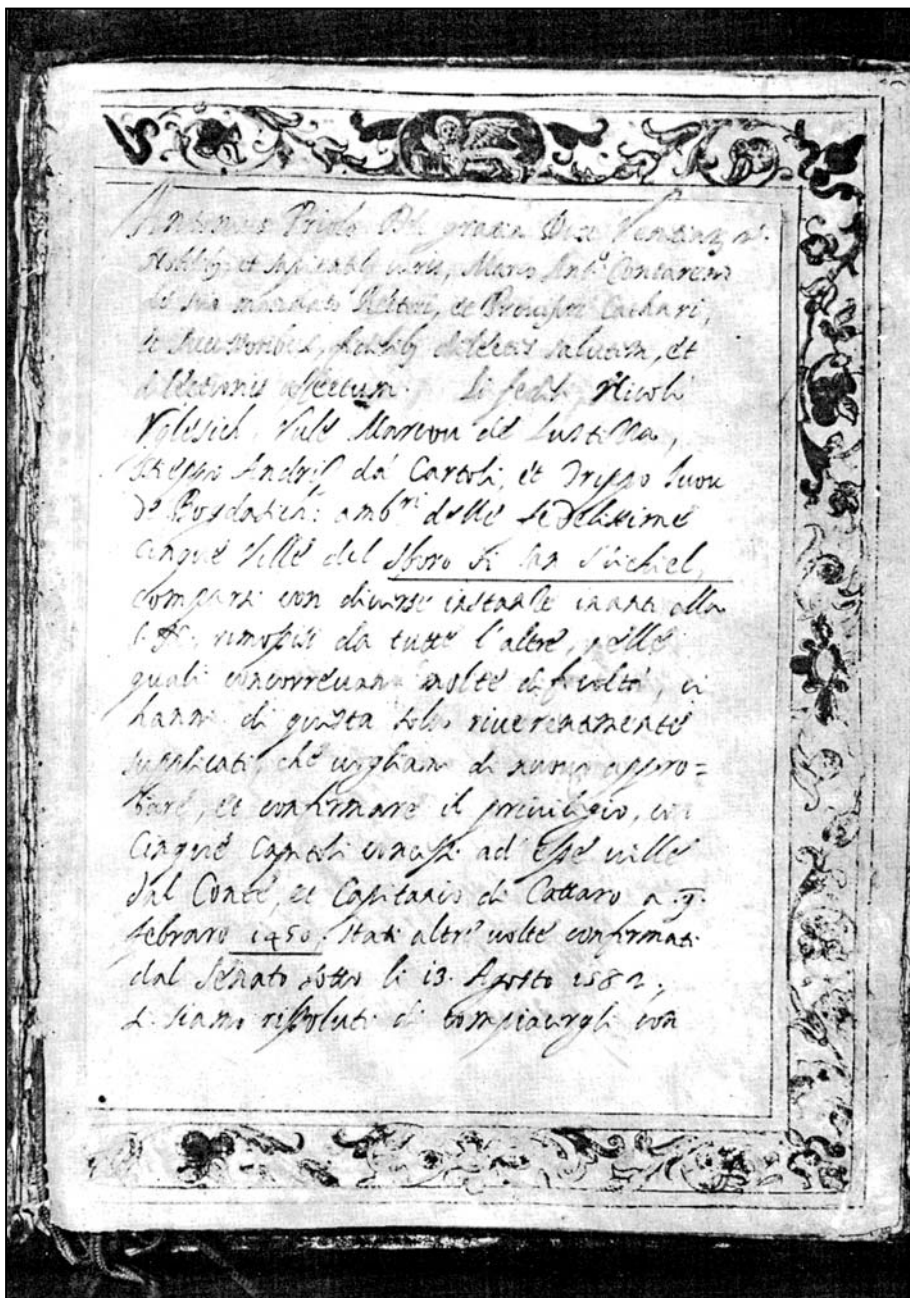 Antonius Priolo Dei gratia Dux Venetiar. et.
Nobilib. et Sapientib. viris, Marco Ant.º Contareno
de suo mandato Rettori, et Provisori Cathari,
et successoribus, fidelib. dilectis salutem, et
dilectionis affectum. Li fedeli Nicolò
Vglesich, Vule Marcou de Lustizza,
Stiepo Andrić da Cartoli, et Trippo Iuou
de Bogdasich: amb.ri delle fedelissime
Cinque Ville del sboro di San Michiel,
comparsi con diuerse instanze inanti alla
S. N. rimossisi da tutte l'altre, nelle
quali concorreuano molte difficoltà, ci
hanno di questa sola riuerentemente
supplicati, che uogliamo di nuouo appro=
bare, et confirmare il priuilegio, con
Cinque Capitoli concessi ad esse uille
dal Conte, et Capitanio di Cattaro a 7.
febraro 1450. stati altre uolte confirmati
dal Senato sotto li 13. Agosto 1582,
et siamo rissoluti di compiacergli con